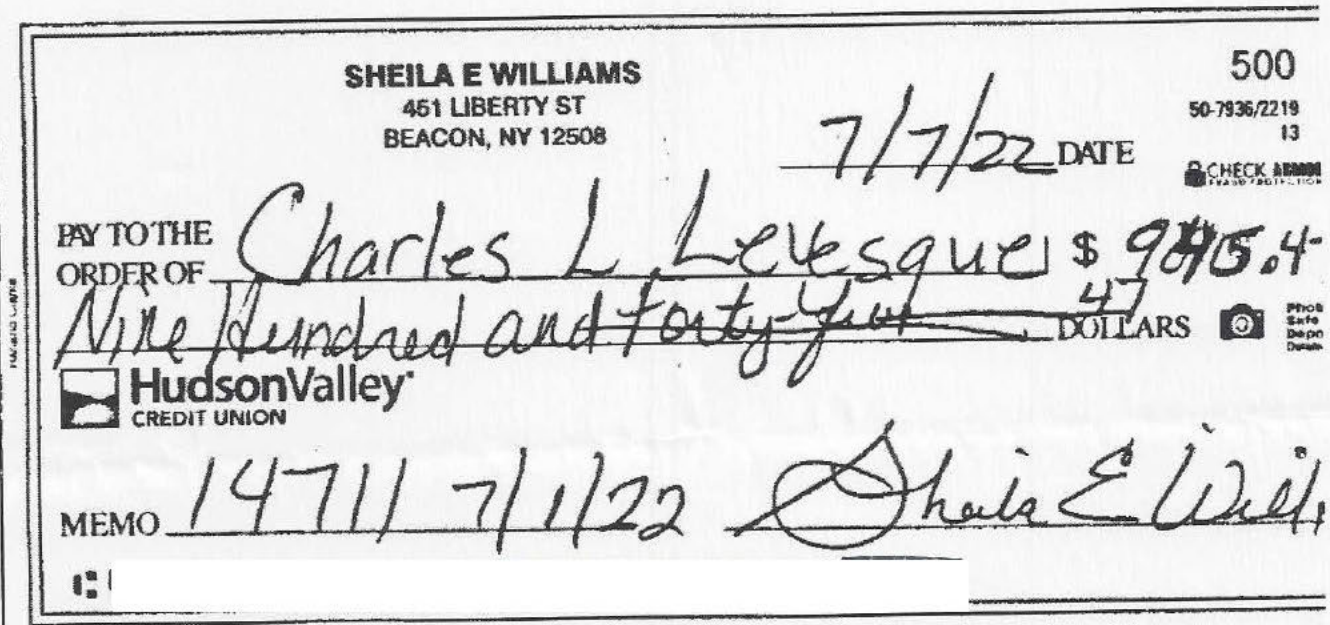 SHEILA E WILLIAMS
451 LIBERTY ST
BEACON, NY 12508
500
50-7936/2219
13
7/7/22 DATE
CHECK
PAY TO THE
ORDER OF Charles L Levesque $ 945.4
Nine Hundred and Forty-Five 47 DOLLARS
HudsonValley
CREDIT UNION
MEMO 14711 7/1/22 Sheila E Will